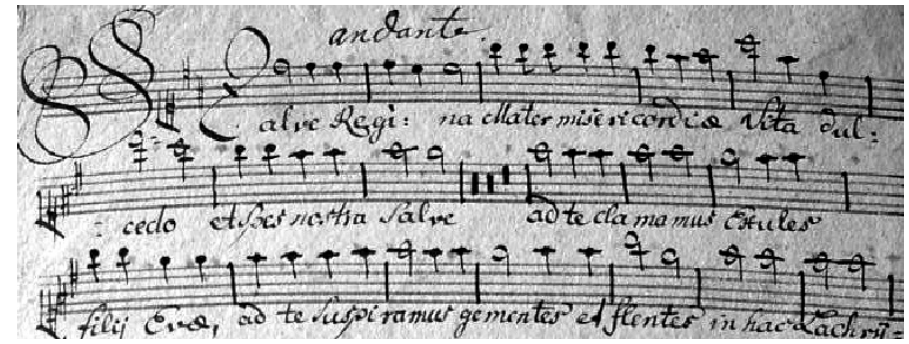 andante.
Salve Regi: na Mater misericordiæ Vita dul:
: cedo et spes nostra salve ad te clamamus Exules
filij Evæ, ad te suspiramus gementes et flentes in hac Lachrÿ: